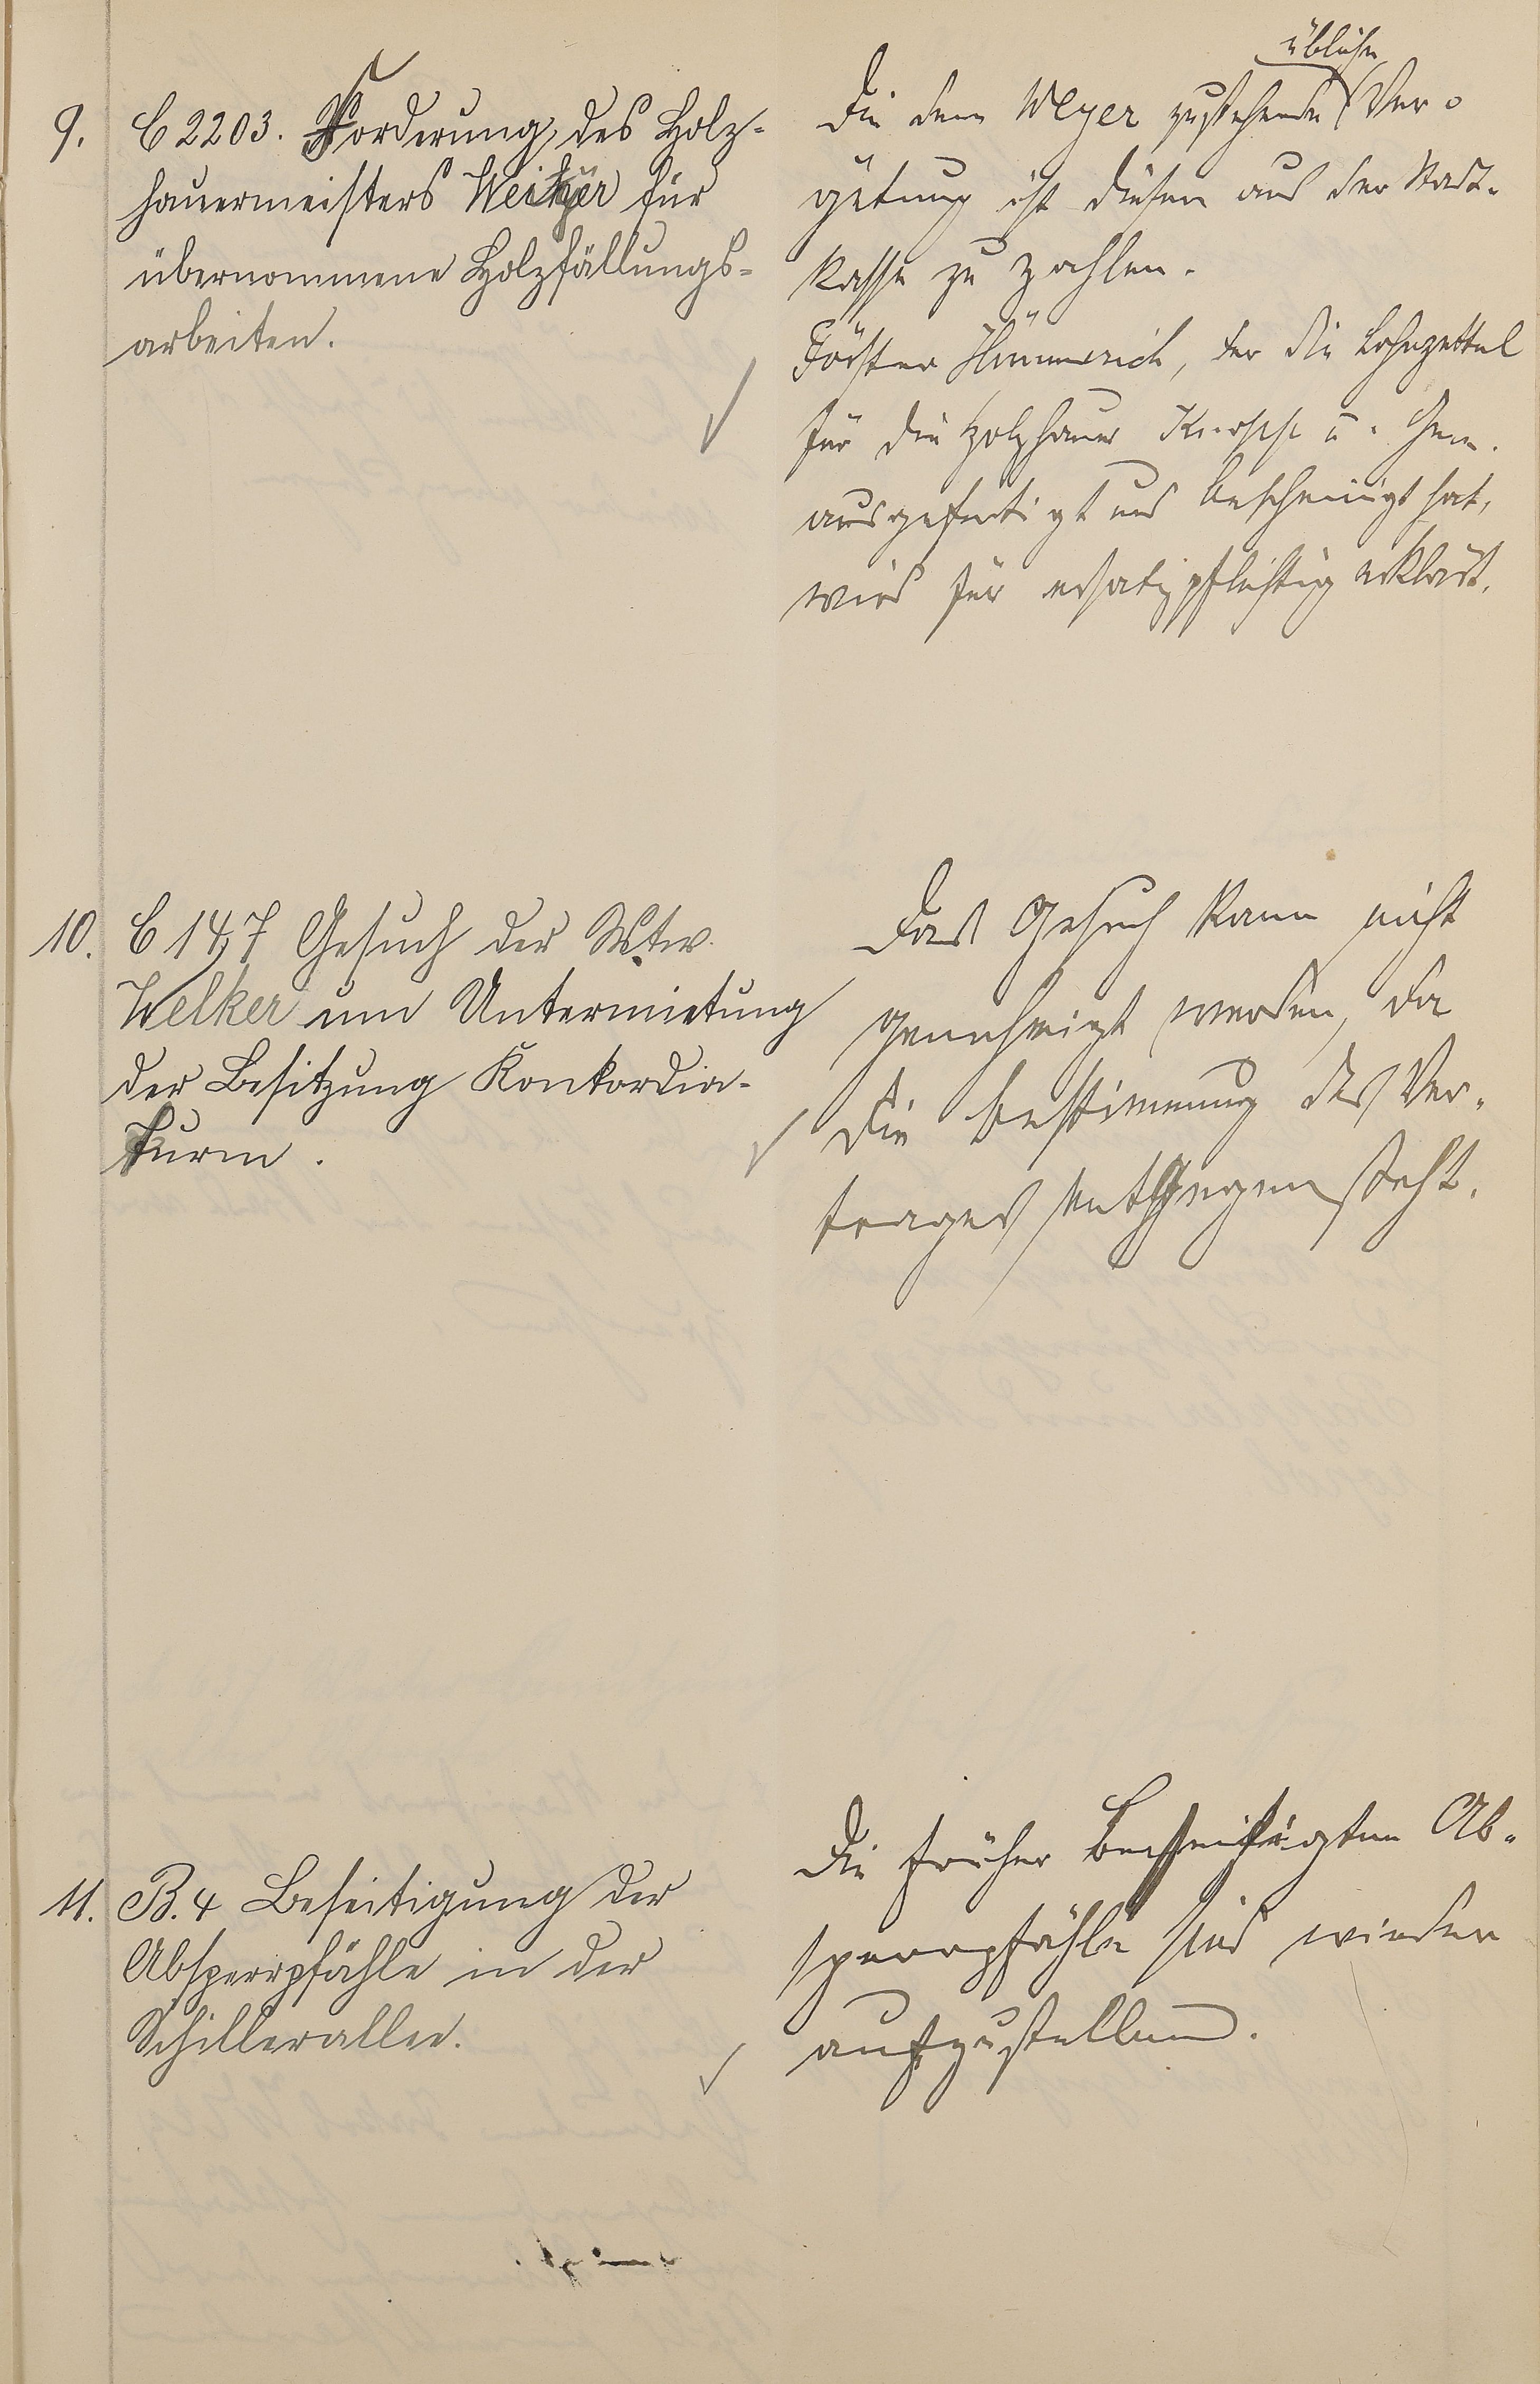 9. C 2203. Forderung des Holz-
hauermeisters Weiher für
übernommene Holzfällungs-
arbeiten.
Die dem Weyer zustehende übliche Ver-
gütung ist diesem aus der Stadt-
kasse zu zahlen.
Förster Hümmerich, der die Lohnzettel
für die Holzhauer Knopp u. Gen.
ausgefertigt und bescheinigt hat,
wird für ersatzpflichtig erklärt.
10. C 147 Gesuch der Wtw.
Welker um Untermietung
der Besitzung Konkordia-
turm.
Das Gesuch kann nicht
genehmigt werden, da
die Bestimmung des Ver-
trages entgegen steht.
11. B. 4 Beseitigung der
Absperrpfähle in der
Schillerallee.
Die früher beseitigten Ab-
sperrpfähle sind wieder
aufzustellen.